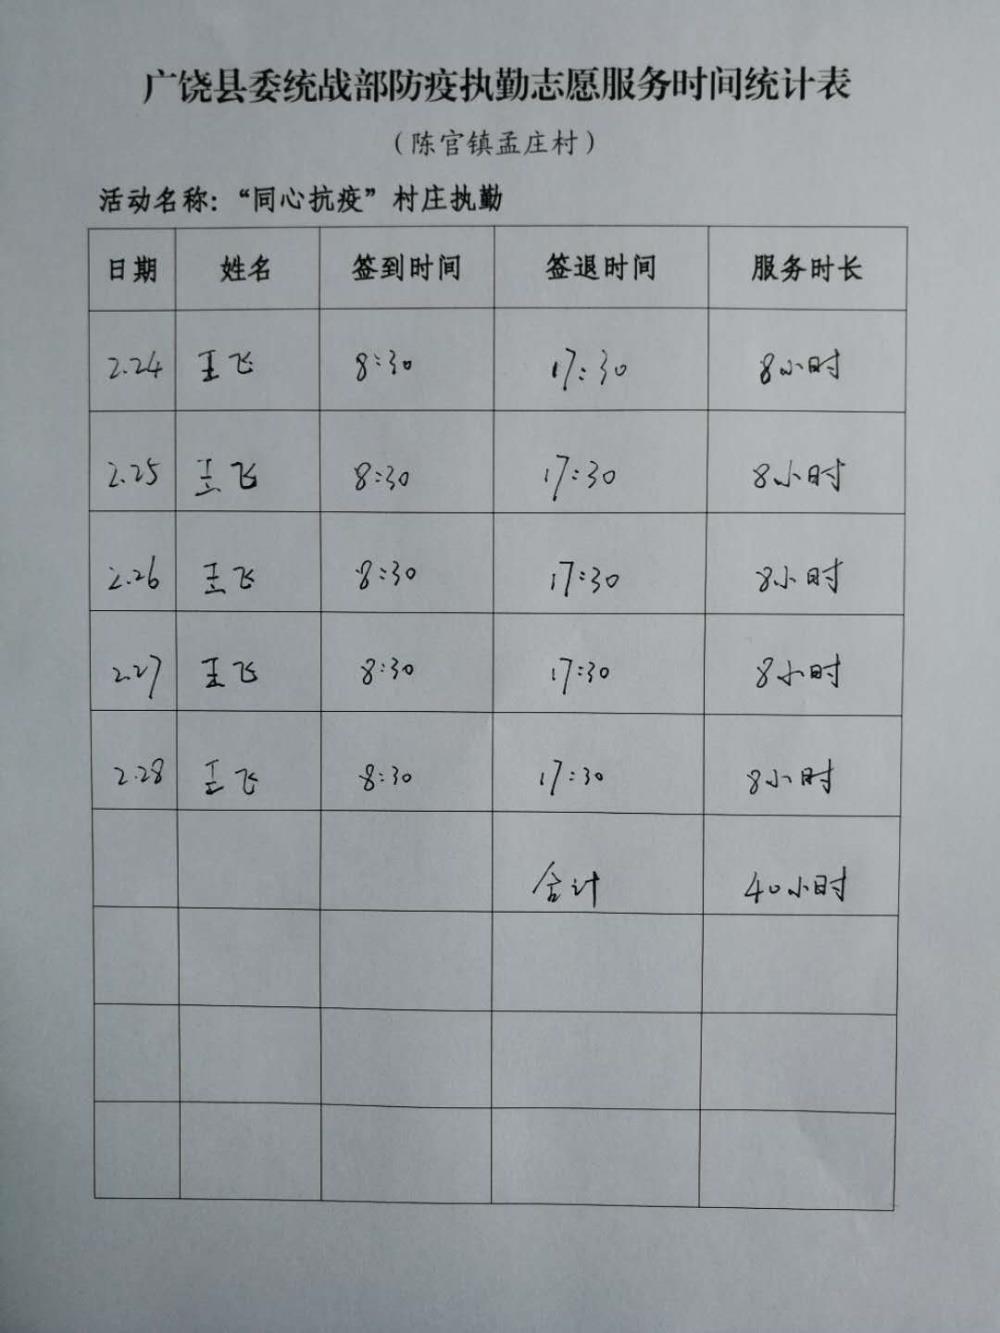 广饶县委统战部防疫执勤志愿服务时间统计表
（陈官镇孟庄村）
活动名称：“同心抗疫”村庄执勤
日期 姓名 签到时间 签退时间 服务时长
2.24 王飞 8:30 17:30 8小时
2.25 王飞 8:30 17:30 8小时
2.26 王飞 8:30 17:30 8小时
2.27 王飞 8:30 17:30 8小时
2.28 王飞 8:30 17:30 8小时
合计 40小时